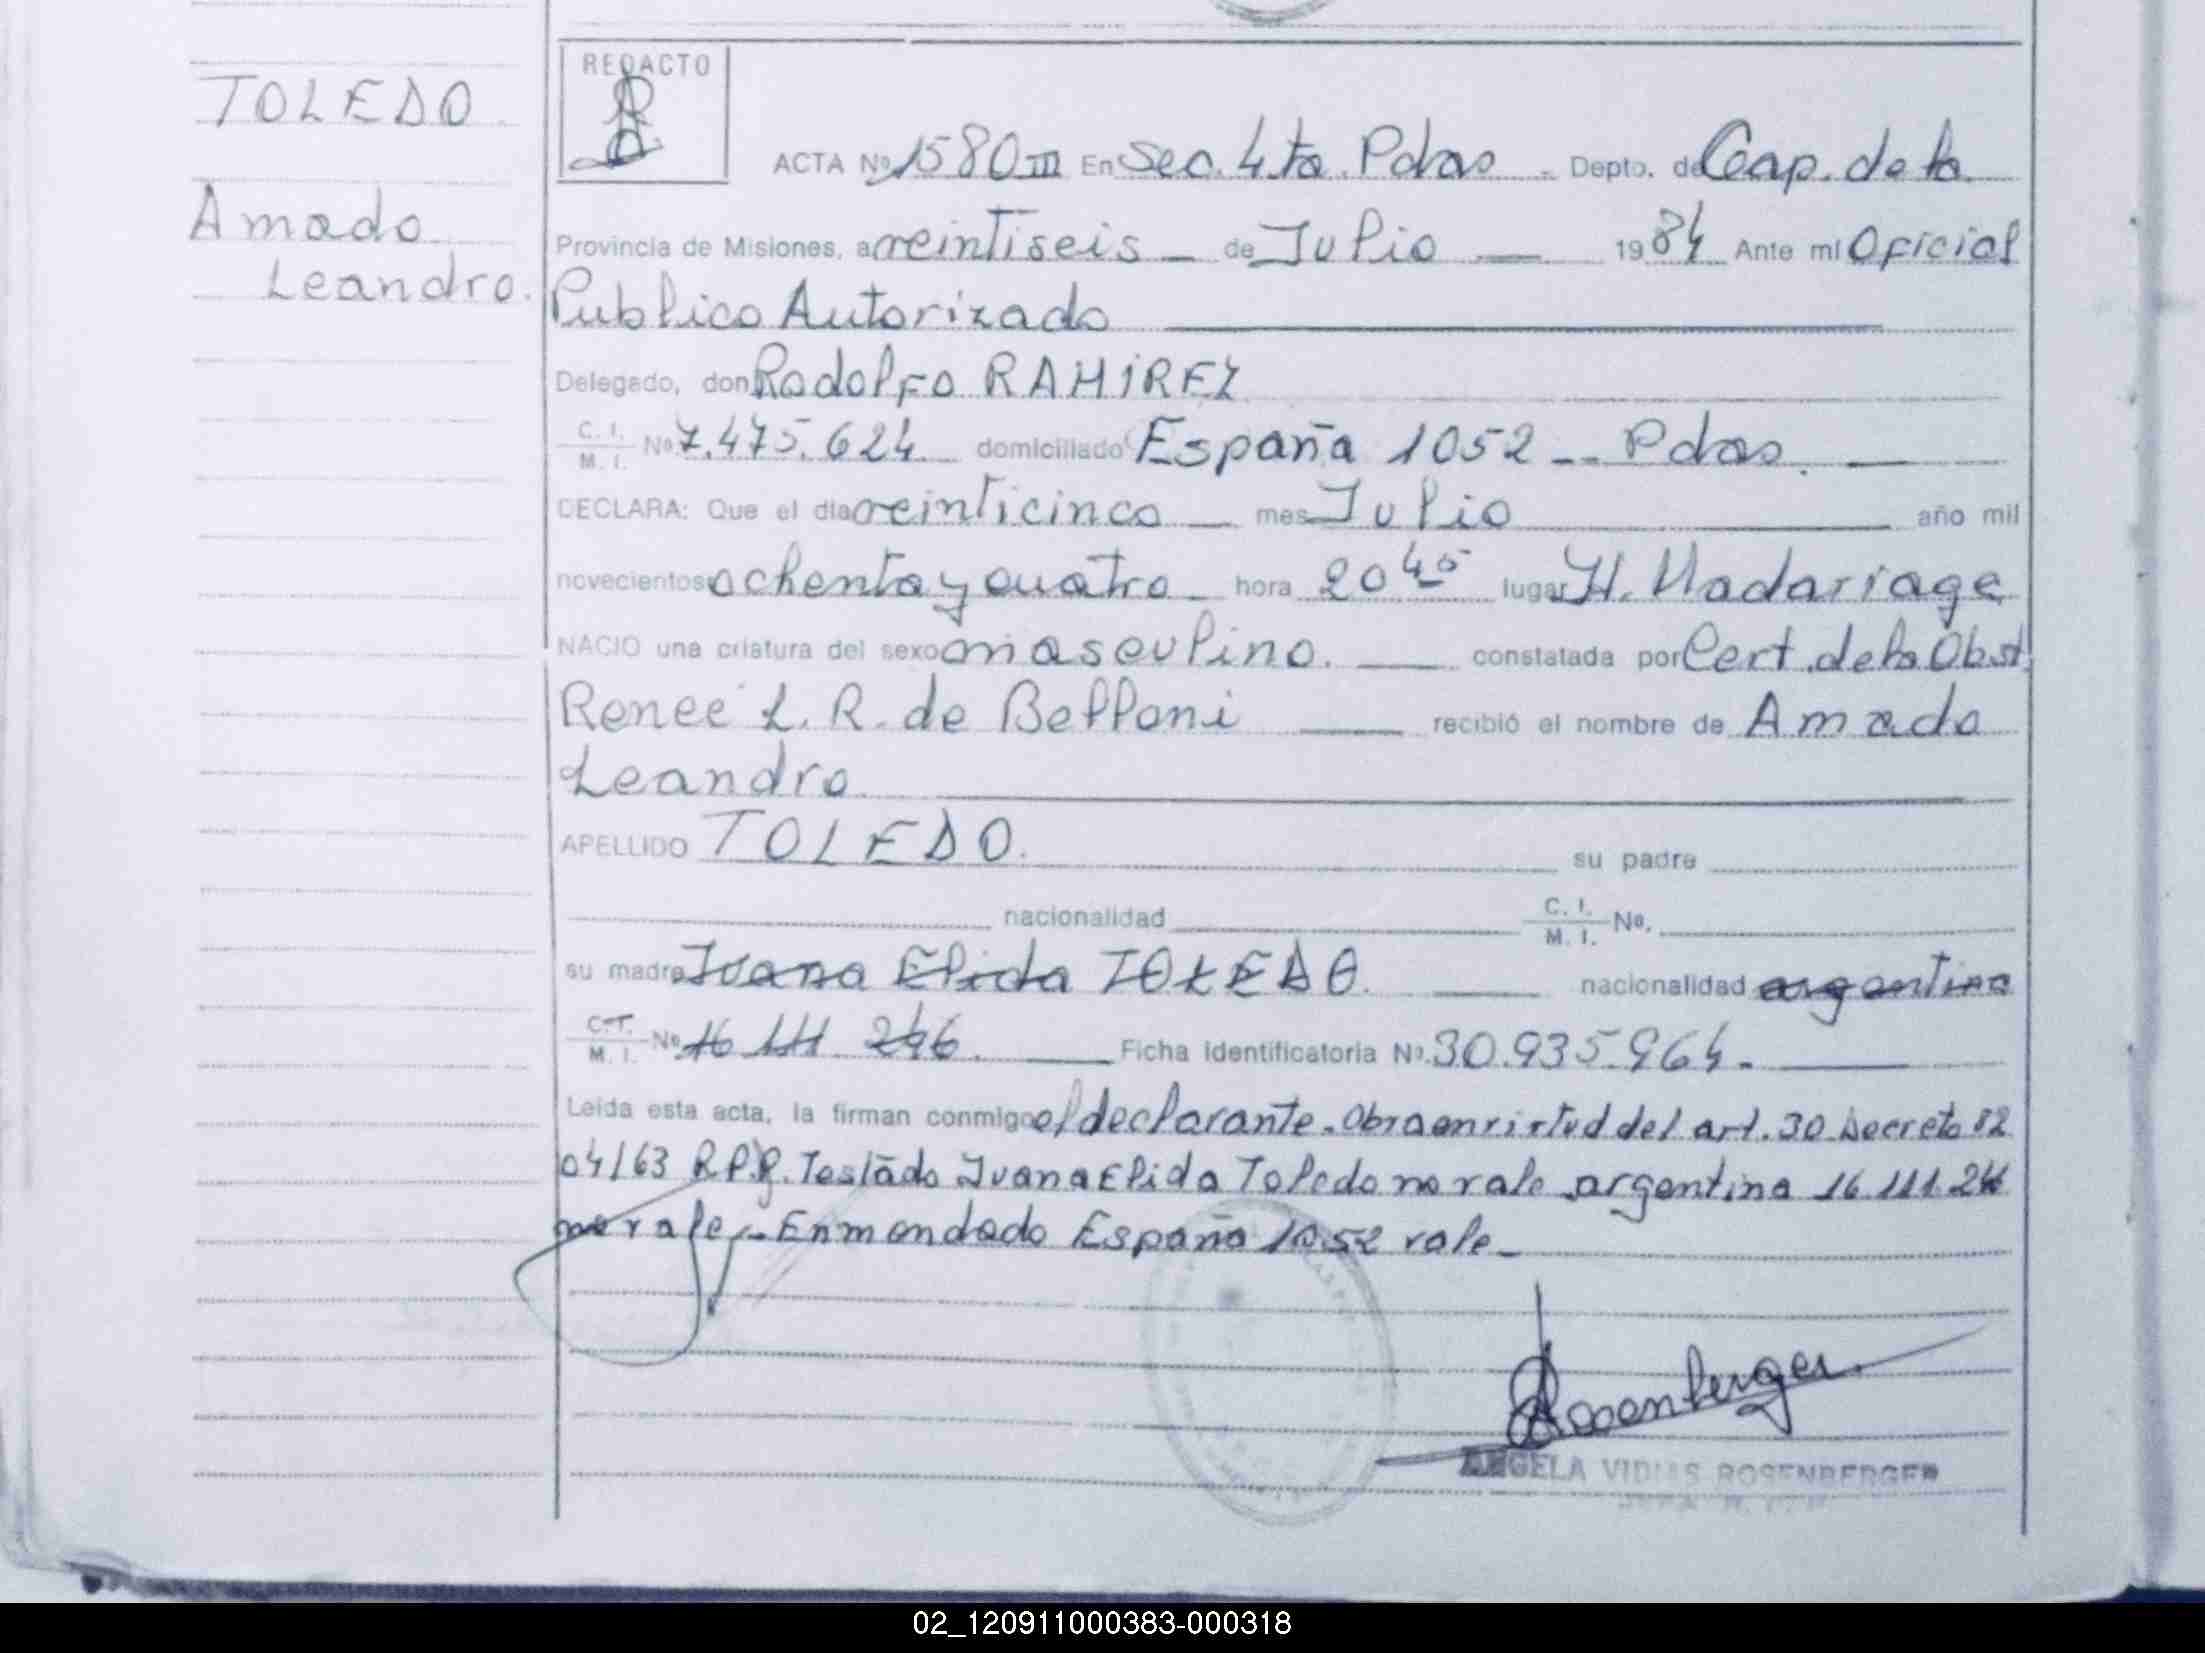 TOLEDO.
Amado
Leandro.
REDACTO
ACTA Nº 1580 III En Sec. 4ta. Pdas - Depto. de Cap. de la
Provincia de Misiones, a veintiseis - de Julio - 1984 Ante mí Oficial
Publico Autorizado
Delegado, don Rodolfo RAMIREZ
C. I. / M. I. Nº 7.475.624 domiciliado España 1052 -- Pdas.
DECLARA: Que el día veinticinco - mes Julio año mil
novecientos ochenta y cuatro - hora 20 45 lugar H. Madariaga
NACIO una criatura del sexo masculino. constatada por Cert. de la Obst.
Renee L. R. de Belloni recibió el nombre de Amado
Leandro.
APELLIDO TOLEDO. su padre
nacionalidad C. I. / M. I. Nº.
su madre Juana Elida TOLEDO. nacionalidad argentina
C. I. / M. I. Nº 16 111 246. Ficha Identificatoria Nº. 30.935.964.-
Leída esta acta, la firman conmigo el declarante. Obra en virtud del art. 30 Decreto 82
04/63 R.P.P. Testado Juana Elida Toledo no vale argentina 16.111.246
no vale - Enmendado España 1052 vale-
Rosenberger
ANGELA VIDMAS ROSENBERGER
02_120911000383-000318